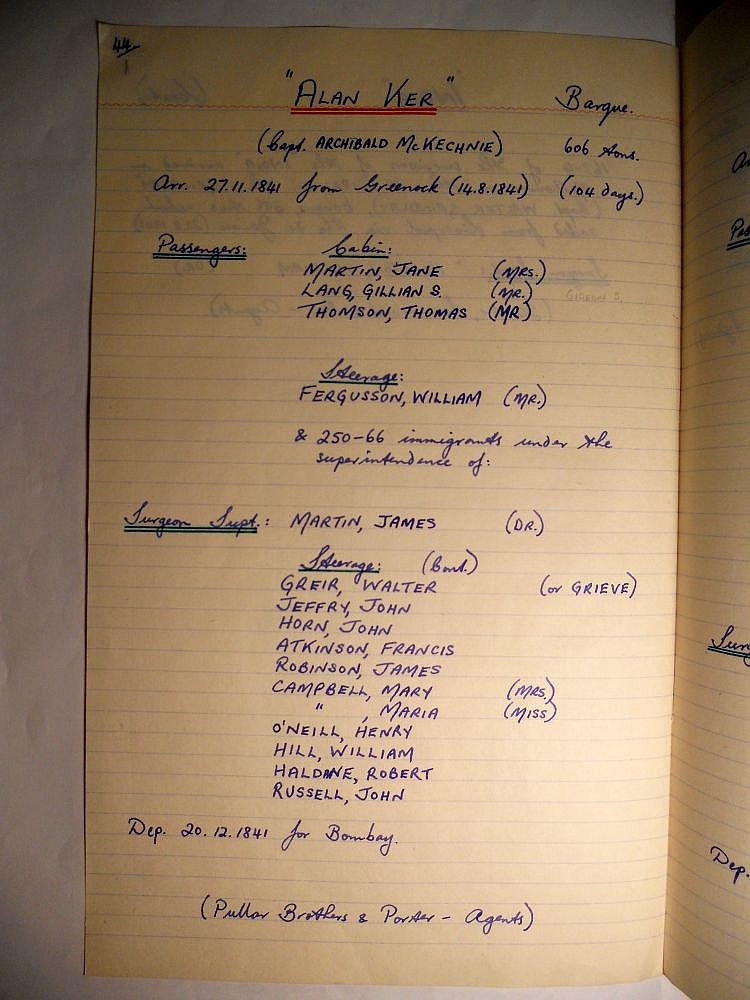 44
1
"ALAN KER" Barque.
(Capt. ARCHIBALD McKECHNIE) 606 tons.
Arr. 27.11.1841 from Greenock (14.8.1841) (104 days.)
Passengers: Cabin:
MARTIN, JANE (MRS.)
LANG, GILLIAN S. (MR.) GIDEON S.
THOMSON, THOMAS (MR)
Steerage:
FERGUSSON, WILLIAM (MR.)
& 250-66 immigrants under the
superintendence of:
Surgeon Supt.: MARTIN, JAMES (DR.)
Steerage: (Cont.)
GREIR, WALTER (or GRIEVE)
JEFFRY, JOHN
HORN, JOHN
ATKINSON, FRANCIS
ROBINSON, JAMES
CAMPBELL, MARY (MRS.)
" , MARIA (MISS)
O'NEILL, HENRY
HILL, WILLIAM
HALDANE, ROBERT
RUSSELL, JOHN
Dep. 20.12.1841 for Bombay.
(Pullar Brothers & Porter - Agents)
Dep.